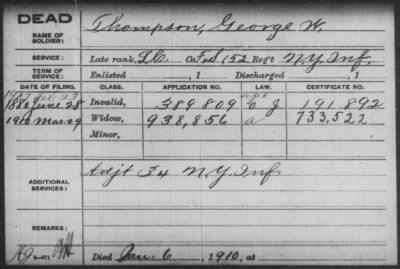 DEAD
NAME OF SOLDIER: Thompson, George W.
SERVICE: Late rank, Co. F. S. 152 Reg't N.Y. Inf.
TERM OF SERVICE: Enlisted , 1 Discharged , 1
DATE OF FILING. CLASS. APPLICATION NO. LAW. CERTIFICATE NO.
1880 June 28 Invalid, 389809 191,892
1910 Mar. 29 Widow, 938,856 a 733,522
Minor,
ADDITIONAL SERVICES: Adjt 34 N.Y. Inf
REMARKS:
Died Jan. 6, 1910, at